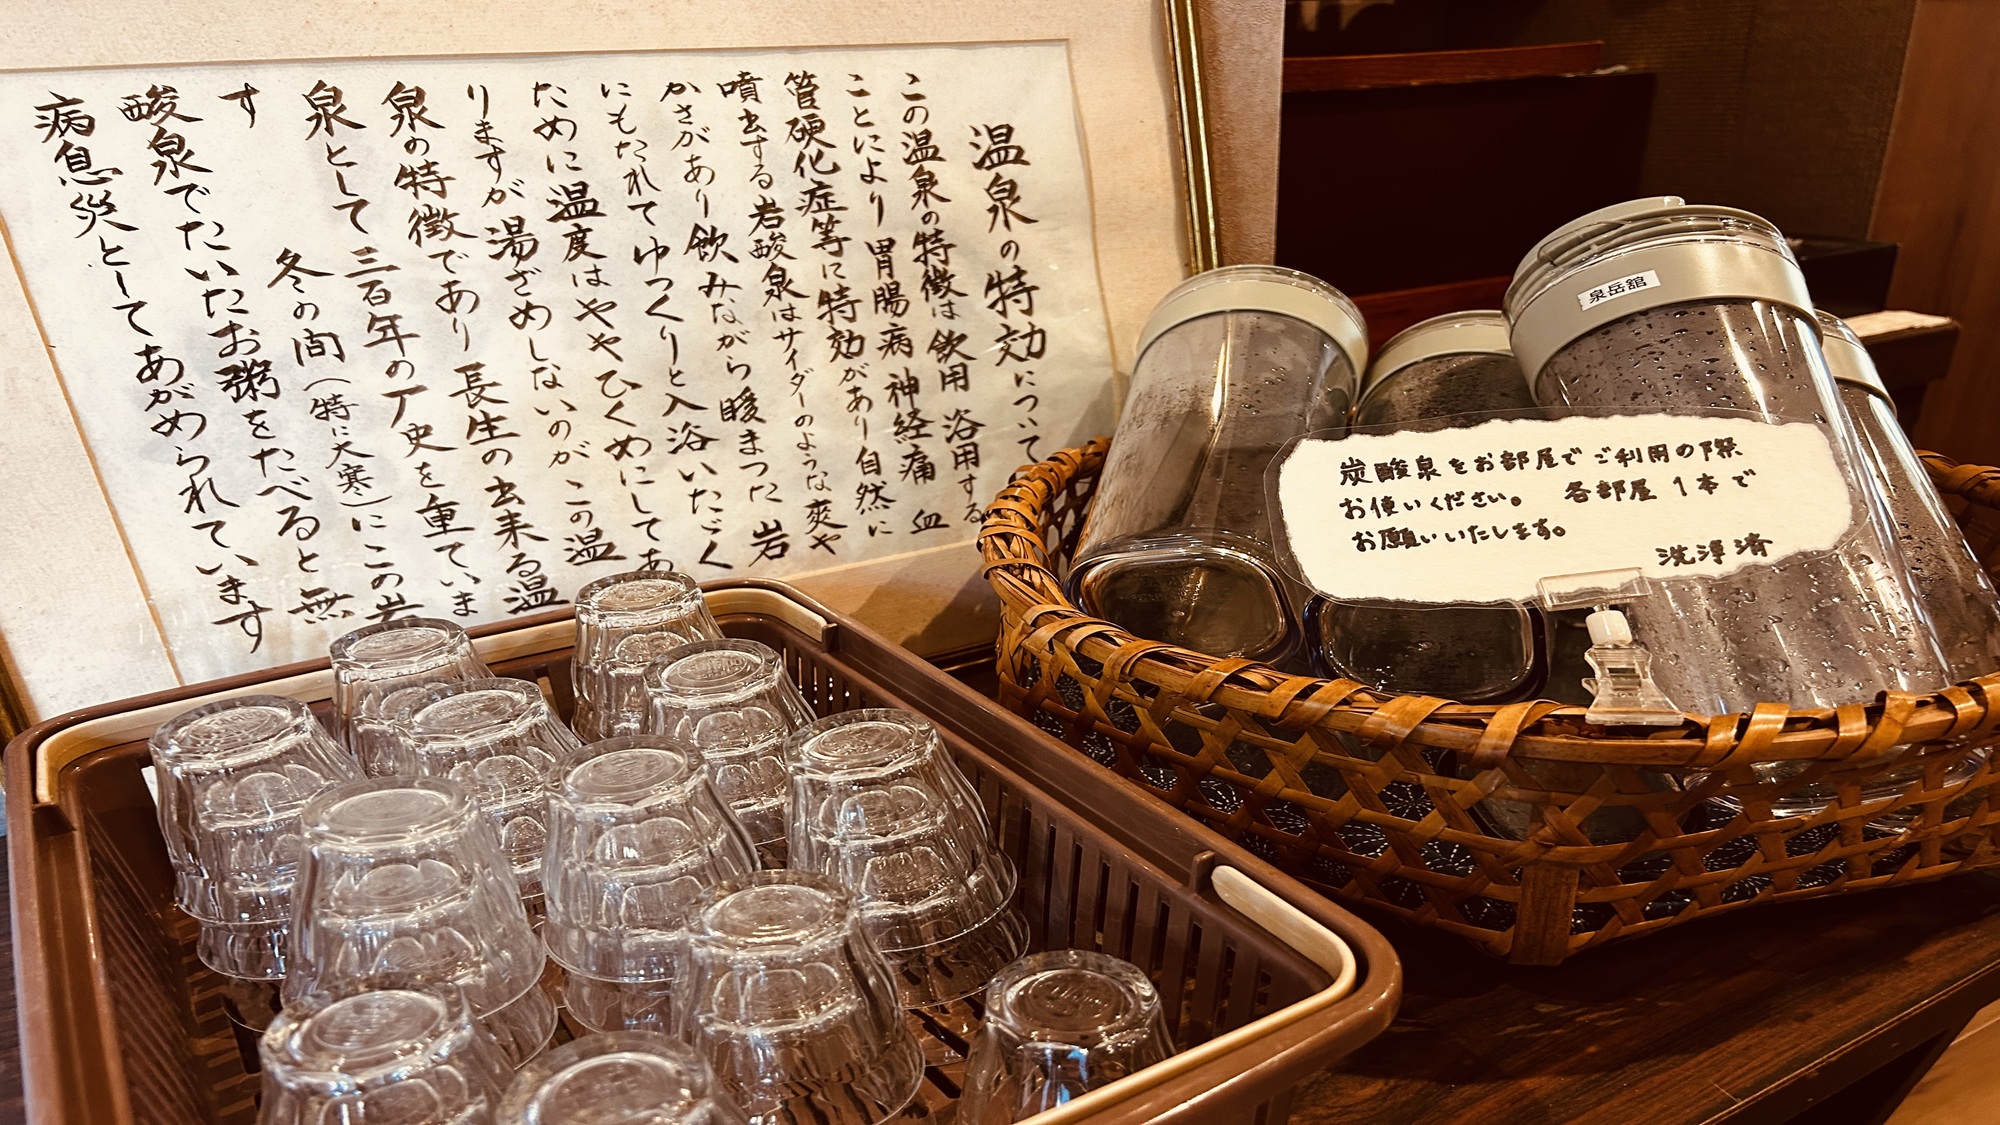 温泉の特効について
この温泉の特徴は飲用 浴用する
ことにより 胃腸病 神経痛 血
管硬化症等に特効があり自然に
噴出する岩酸泉はサイダーのような爽や
かさがあり飲みながら暖まった 岩
にもたれてゆっくりと入浴いただく
ために温度はややひくめにしてあ
りますが湯ざめしないのがこの温
泉の特徴であり 長生の出来る温
泉として三百年の丆史を重ていま
す
冬の間(特に大寒)にこの岩
酸泉でたいたお粥をたべると無
病息災としてあがめられています
泉岳舘
炭酸泉をお部屋でご利用の際
お使いください。 各部屋1本で
お願いいたします。
洗浄済